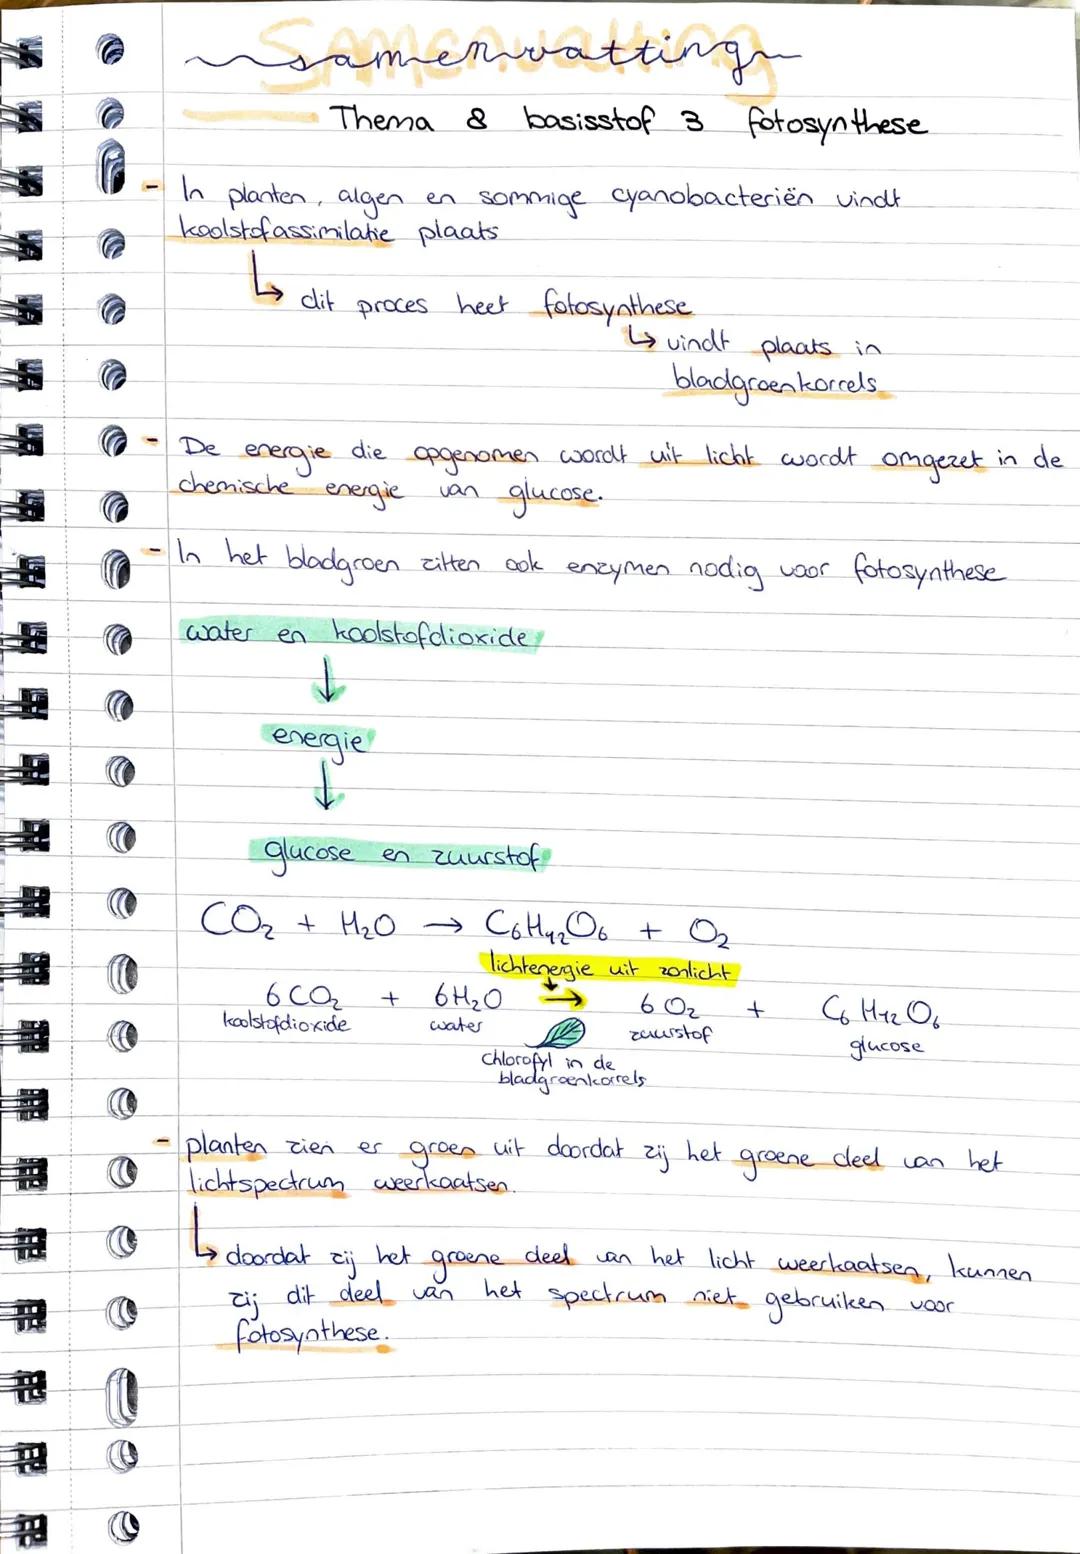 Samenvatting
samenvatting
Thema 8 basisstof 3 fotosynthese
- In planten, algen en sommige cyanobacteriën vindt
koolstofassimilatie plaats
↳ dit proces heet fotosynthese
↳ vindt plaats in
bladgroenkorrels
- De energie die opgenomen wordt uit licht wordt omgezet in de
chemische energie van glucose.
- In het bladgroen zitten ook enzymen nodig voor fotosynthese
water en koolstofdioxide
↓
energie
↓
glucose en zuurstof
CO₂ + H₂O → C₆H₁₂O₆ + O₂
lichtenergie uit zonlicht
6 CO₂ + 6 H₂O → 6 O₂ + C₆H₁₂O₆
koolstofdioxide water zuurstof glucose
Chlorofyl in de
bladgroenkorrels
- planten zien er groen uit doordat zij het groene deel van het
lichtspectrum weerkaatsen.
↳ doordat zij het groene deel van het licht weerkaatsen, kunnen
zij dit deel van het spectrum niet gebruiken voor
fotosynthese.